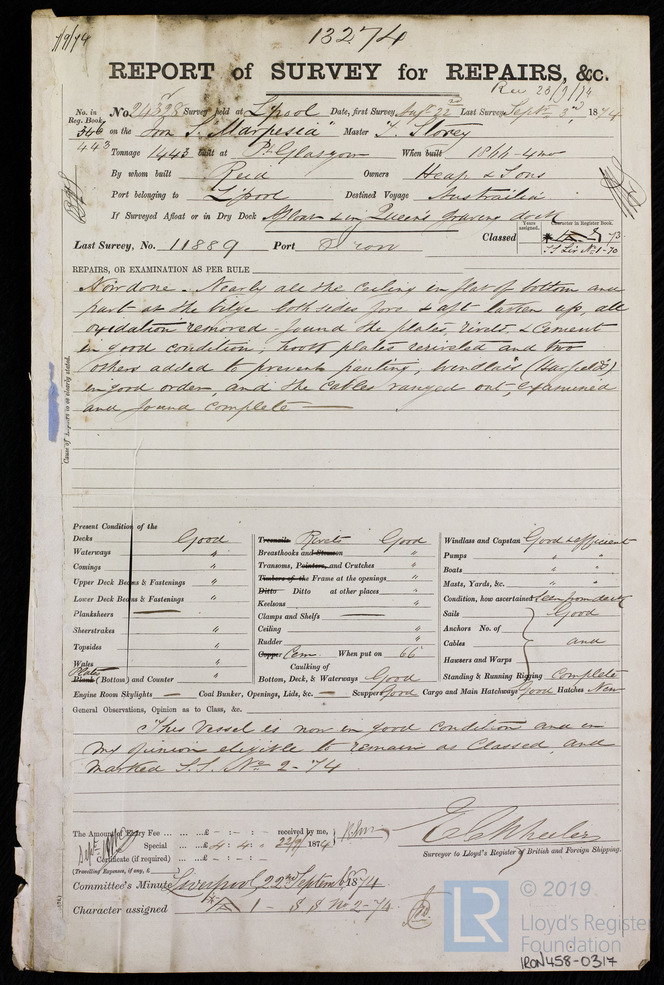 7/9/74
13274
REPORT of SURVEY for REPAIRS, &c.
Rec 23/9/74
No. in Reg. Book. No. 24328 Survey held at L'pool Date, first Survey Augt 22nd Last Survey Septr 3rd 1874
546
443
on the Iron S. "Marpesia" Master T. Storey
Tonnage 1443 built at Pt Glasgow When built 1866-4mo
By whom built Reid Owners Heap & Sons
Port belonging to L'pool Destined Voyage Australia
If Surveyed Afloat or in Dry Dock Afloat & in Queen's graving dock
Years assigned. Character in Register Book.
Last Survey, No. 11889 Port Classed
73
S.S Liv No 1-70
REPAIRS, OR EXAMINATION AS PER RULE
Now done. Nearly all the Ceiling in flat of bottom and
part at the bilge both sides fore & aft taken up, all
oxidation removed - found the plates, rivets, & Cement
in good condition, hooks plates reriveted and two
others added to prevent panting, windlass (Harfield's)
in good order, and the Cables ranged out, examined
and found complete
Cause of Repairs to be clearly stated.
Present Condition of the
Decks Good Treenails Rivets Good Windlass and Capstan Good & efficient
Waterways " Breasthooks and Stemson " Pumps " "
Comings " Transoms, Pointers, and Crutches " Boats " "
Upper Deck Beams & Fastenings " Timbers of the Frame at the openings " Masts, Yards, &c. " "
Lower Deck Beams & Fastenings " Ditto Ditto at other places " Condition, how ascertained Seen from deck
Planksheers Keelsons " Sails Good
Sheerstrakes " Clamps and Shelfs Anchors No. of
Topsides " Ceiling " Cables and
Wales " Rudder " Hawsers and Warps
Copper Cem. When put on 66
Plates
Plank (Bottom) and Counter " Caulking of Bottom, Deck, & Waterways Good Standing & Running Rigging Complete
Engine Room Skylights Coal Bunker, Openings, Lids, &c. Scuppers Good Cargo and Main Hatchways Good Hatches New
General Observations, Opinion as to Class, &c.
This Vessel is now in good condition and in
my opinion eligible to remain as Classed, and
marked S.S. No 2-74
The Amount of Entry Fee ... £ - : - : - received by me,
Special ... £ 4 : 4 : " 22/9/1874
Certificate (if required) ... £ - : - : -
(Travelling Expenses, if any, £
E C Wheeler
Surveyor to Lloyd's Register of British and Foreign Shipping.
Committee's Minute Liverpool 22nd September 1874
Character assigned 1 - S S No 2-74
LR
© 2019.
Lloyd's Register
Foundation
IRON458-0317